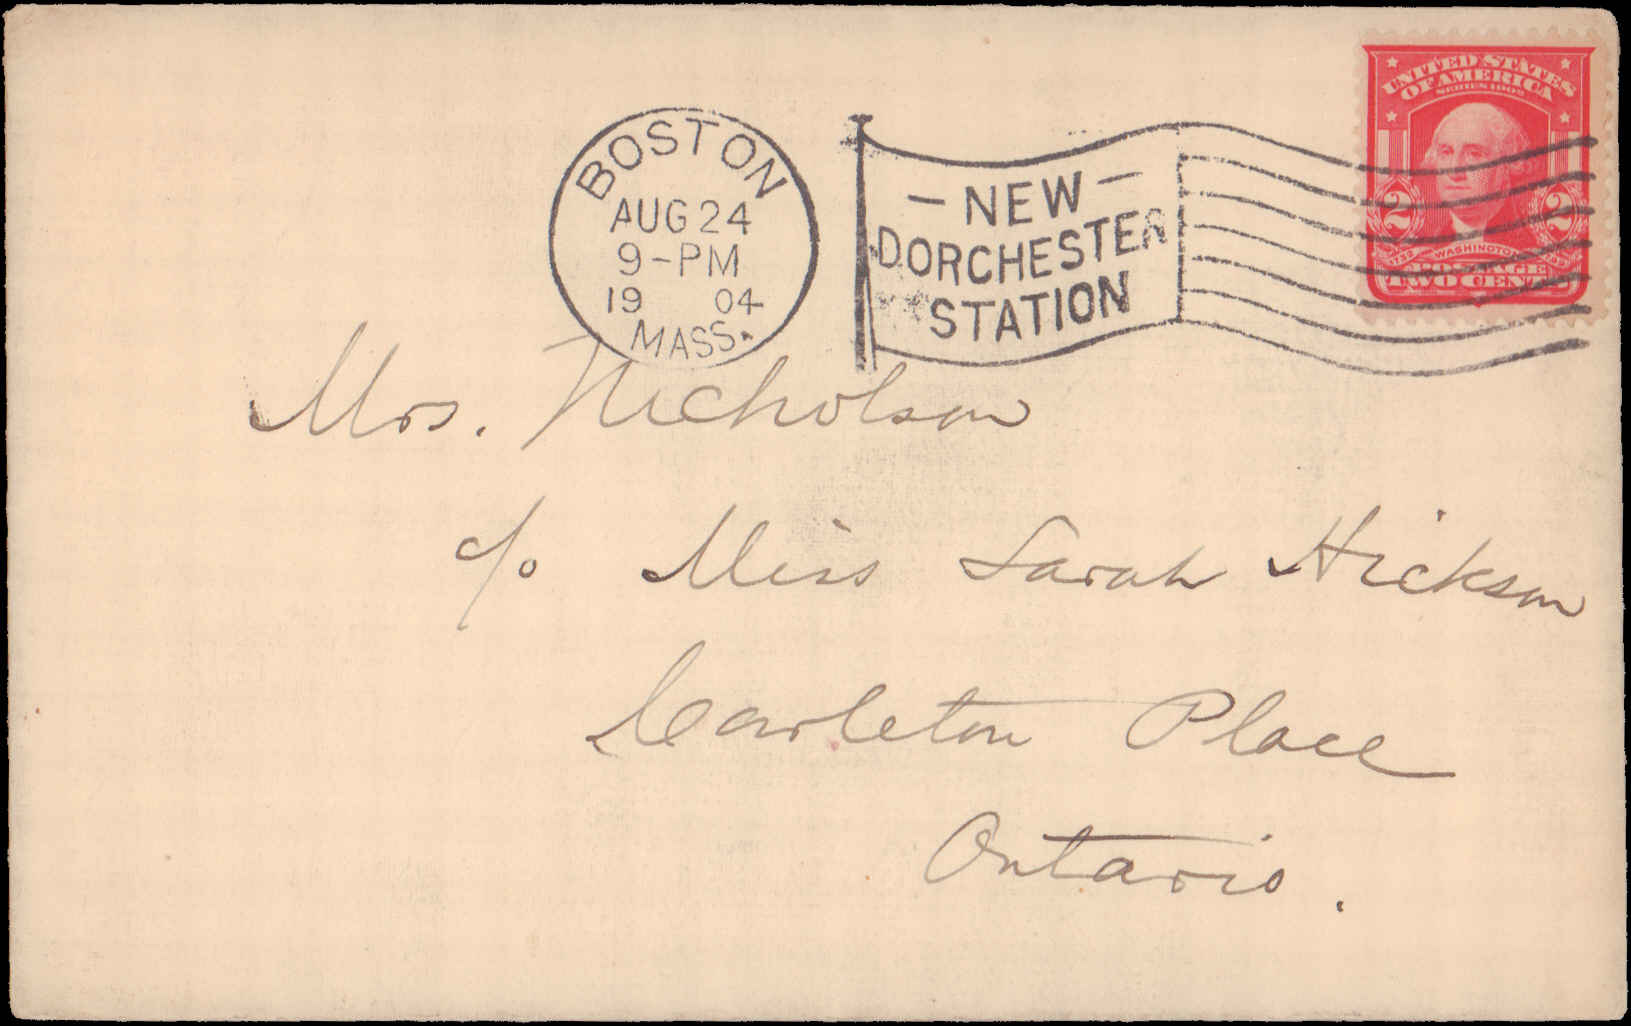 UNITED STATES
OF AMERICA
SERIES 1902
BOSTON
AUG 24
9-PM
19 04
MASS.
- NEW -
DORCHESTER
STATION
2 2
1732 WASHINGTON 1799
POSTAGE
TWO CENTS
Mrs. Nicholson
c/o Miss Sarah Hickson
Carleton Place
Ontario.